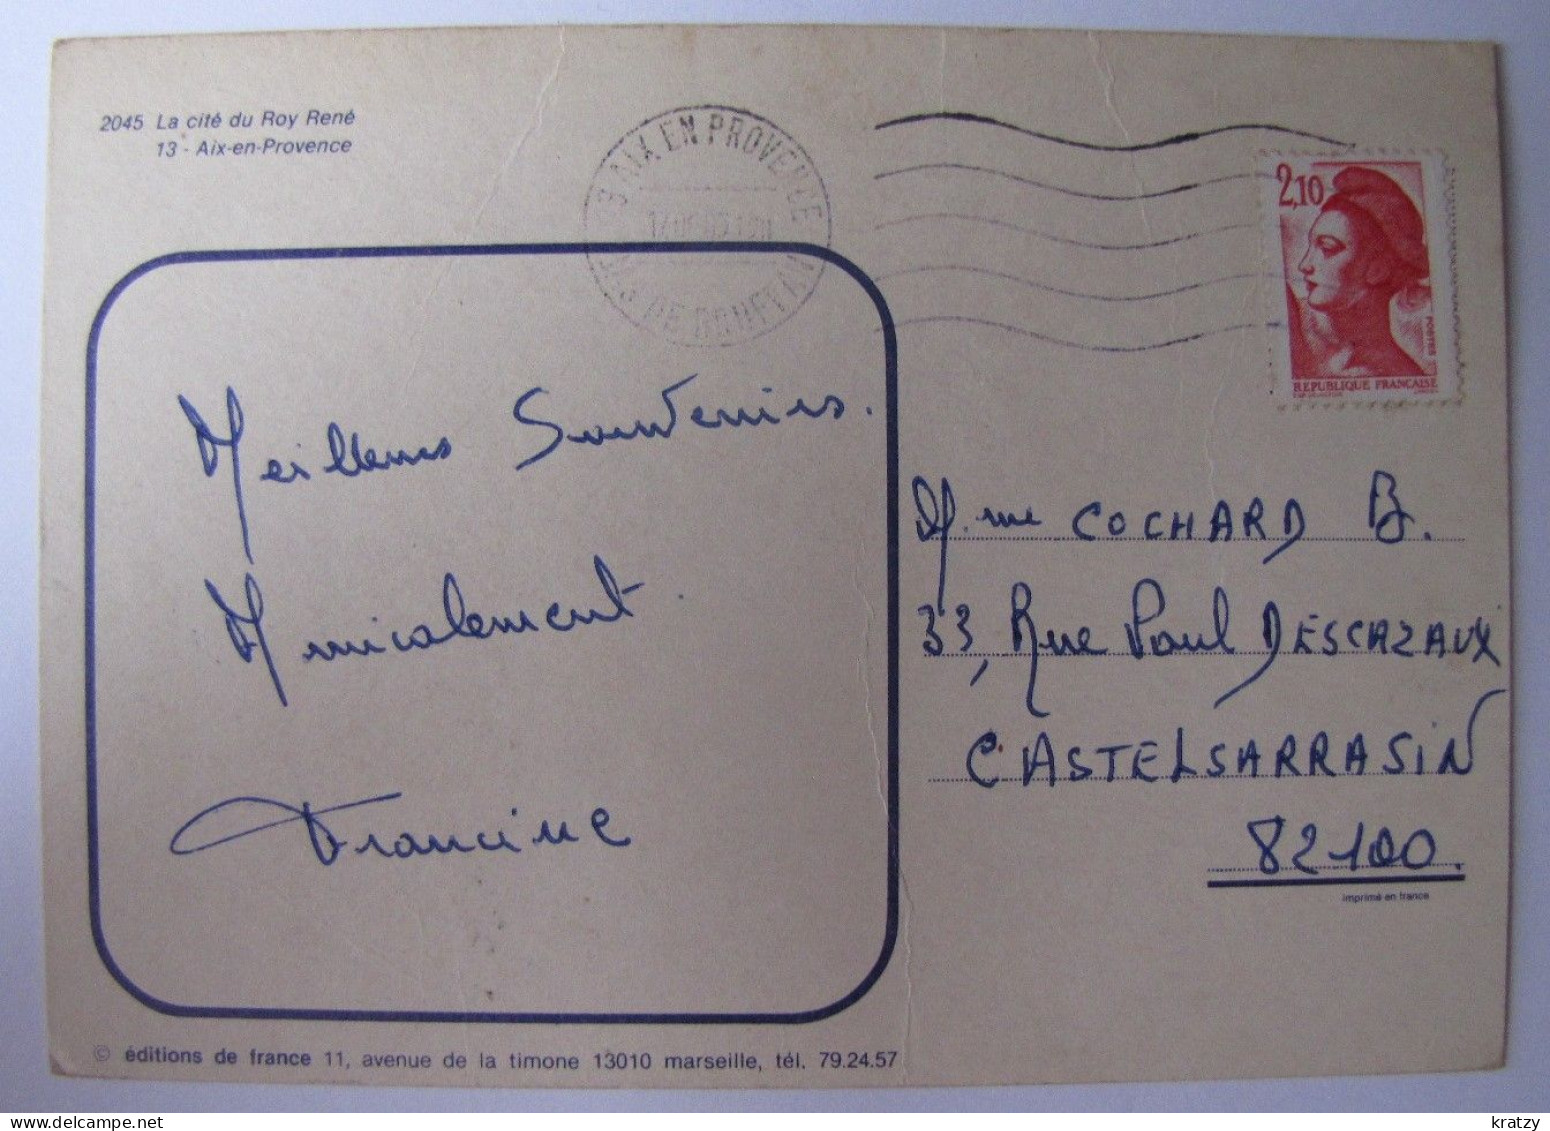 2045 La cité du Roy René
13 - Aix-en-Provence
13 AIX EN PROVENCE
BOUCHES DU RHONE
2,10
POSTES
REPUBLIQUE FRANCAISE
Meilleurs Souvenirs.
Amicalement.
Francine
M.me COCHARD B.
33, Rue Paul DESCAZAUX
CASTELSARRASIN
82100.
imprimé en france
© éditions de france 11, avenue de la timone 13010 marseille, tél. 79.24.57
kratzy